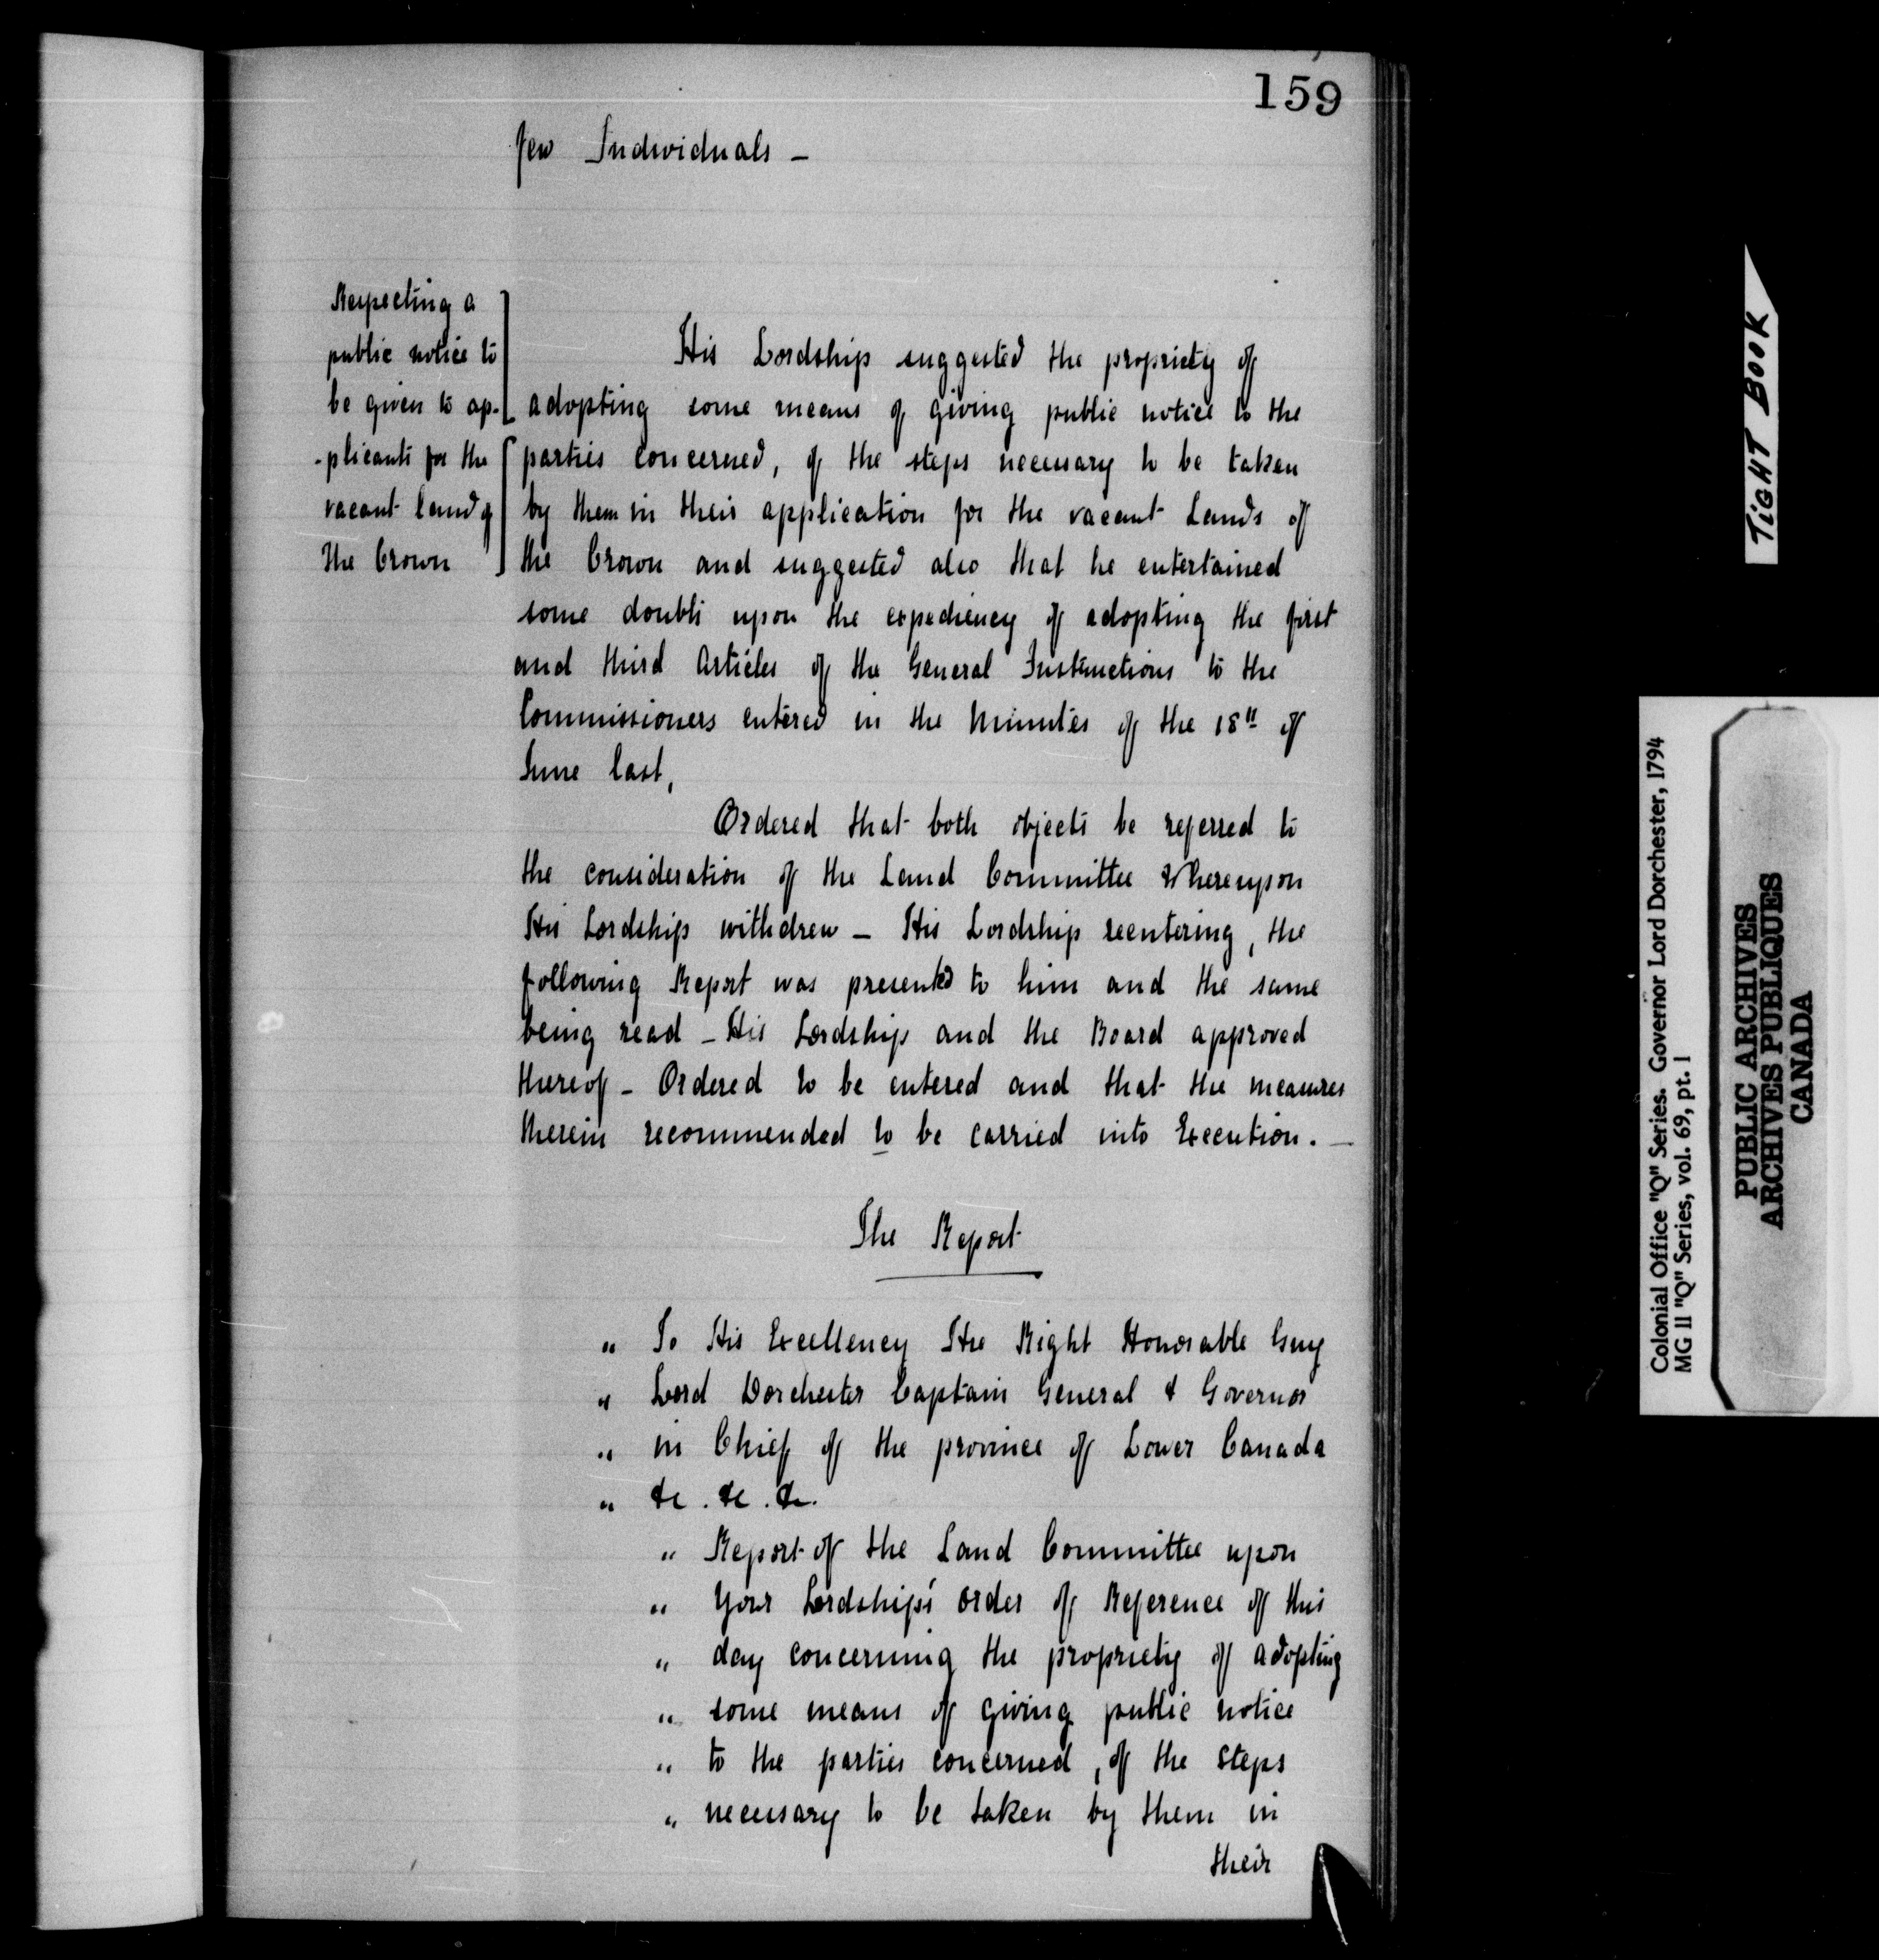 159
few Individuals -
Respecting a
public notice to
be given to ap-
-plicants for the
vacant land of
the Crown
His Lordship suggested the propriety of
adopting some means of giving public notice to the
parties concerned, of the steps necessary to be taken
by them in their application for the vacant Lands of
the Crown and suggested also that he entertained
some doubts upon the expediency of adopting the first
and third Articles of the General Instructions to the
Commissioners entered in the Minutes of the 18th of
June last,
Ordered that both objects be referred to
the consideration of the Land Committee Whereupon
His Lordship withdrew - His Lordship reentering, the
following Report was presented to him and the same
being read - His Lordship and the Board approved
thereof - Ordered to be entered and that the measures
therein recommended to be carried into Execution. -
The Report
" To His Excellency The Right Honorable Guy
" Lord Dorchester Captain General & Governor
" in Chief of the province of Lower Canada
" &c. &c. &c.
" Report of the Land Committee upon
" Your Lordship's order of Reference of this
" day concerning the propriety of adopting
" some means of giving public notice
" to the parties concerned, of the steps
" necessary to be taken by them in
their
TIGHT BOOK
Colonial Office "Q" Series. Governor Lord Dorchester, 1794
MG 11 "Q" Series, vol. 69, pt. 1
PUBLIC ARCHIVES
ARCHIVES PUBLIQUES
CANADA